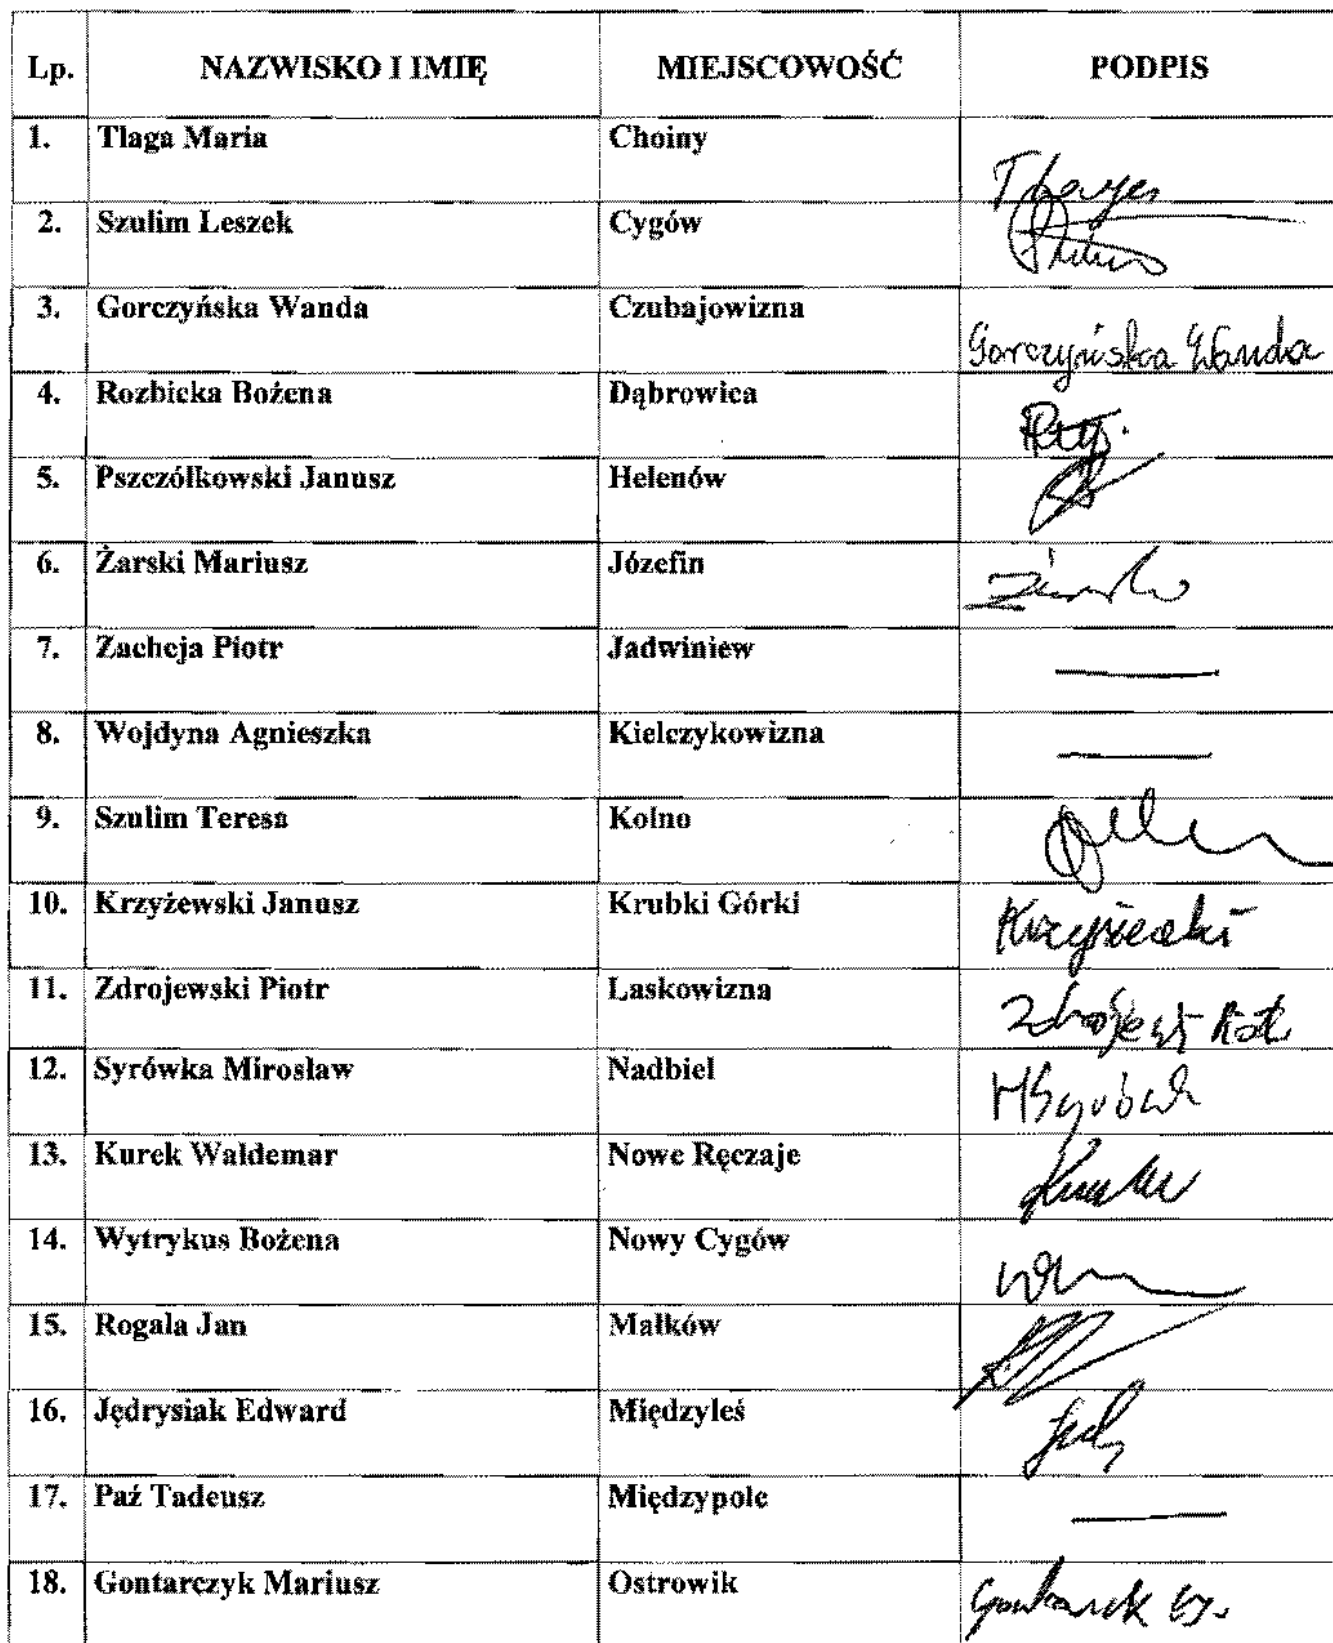 Lp. NAZWISKO I IMIĘ MIEJSCOWOŚĆ PODPIS
1. Tlaga Maria Choiny
2. Szulim Leszek Cygów
3. Gorczyńska Wanda Czubajowizna Gorczyńska Wanda
4. Rozbicka Bożena Dąbrowica
5. Pszczółkowski Janusz Helenów
6. Żarski Mariusz Józefin
7. Zacheja Piotr Jadwiniew —
8. Wojdyna Agnieszka Kielczykowizna —
9. Szulim Teresa Kolno
10. Krzyżewski Janusz Krubki Górki
11. Zdrojewski Piotr Laskowizna
12. Syrówka Mirosław Nadbiel
13. Kurek Waldemar Nowe Ręczaje
14. Wytrykus Bożena Nowy Cygów
15. Rogala Jan Małków
16. Jędrysiak Edward Międzyleś
17. Paź Tadeusz Międzypole —
18. Gontarczyk Mariusz Ostrowik